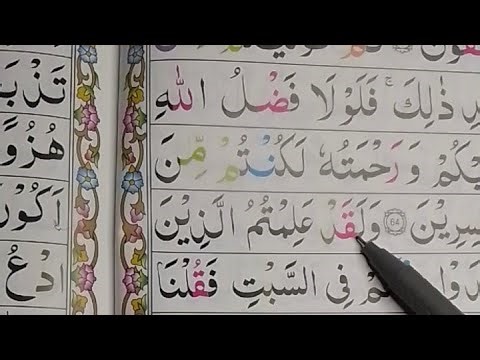 دِ ذٰلِكَ ۚ فَلَوْلَا فَضْلُ اللّٰهِ
يْكُمْ وَرَحْمَتُهٗ لَكُنْتُمْ مِّنَ
سِرِيْنَ ﴿64﴾ وَلَقَدْ عَلِمْتُمُ الَّذِيْنَ
فِى السَّبْتِ فَقُلْنَا
تَذْبَ
هُزُوًا
اَكُوْنَ
ادْعُ